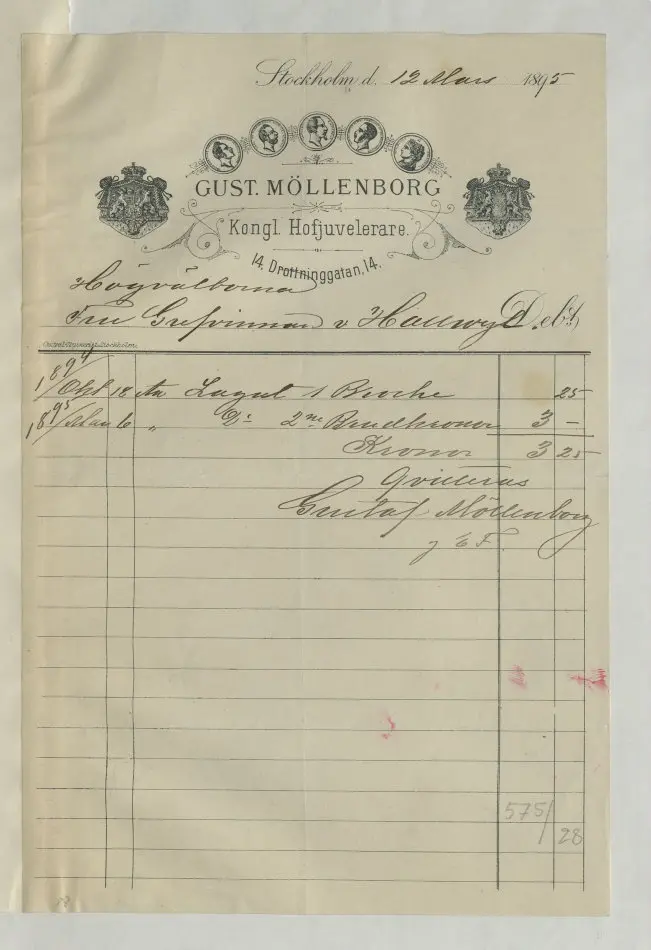 Stockholm d. 12 Mars 1895
GUST. MÖLLENBORG
Kongl. Hofjuvelerare.
14. Drottninggatan, 14.
Högvälborna
Fru Grefvinnan v Hallwyl Debt
Centraltryckeriet, Stockholm.
1894
Okt 18 An Lagat 1 Broche 25
1895
Mars 6 „ Do 2ne Brudkronor 3 —
Kronor 3 25
Qvitteras
Gustaf Möllenborg
575/28